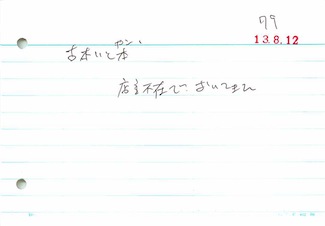 79
13.8.12
古本いと本
店主不在で おいてません